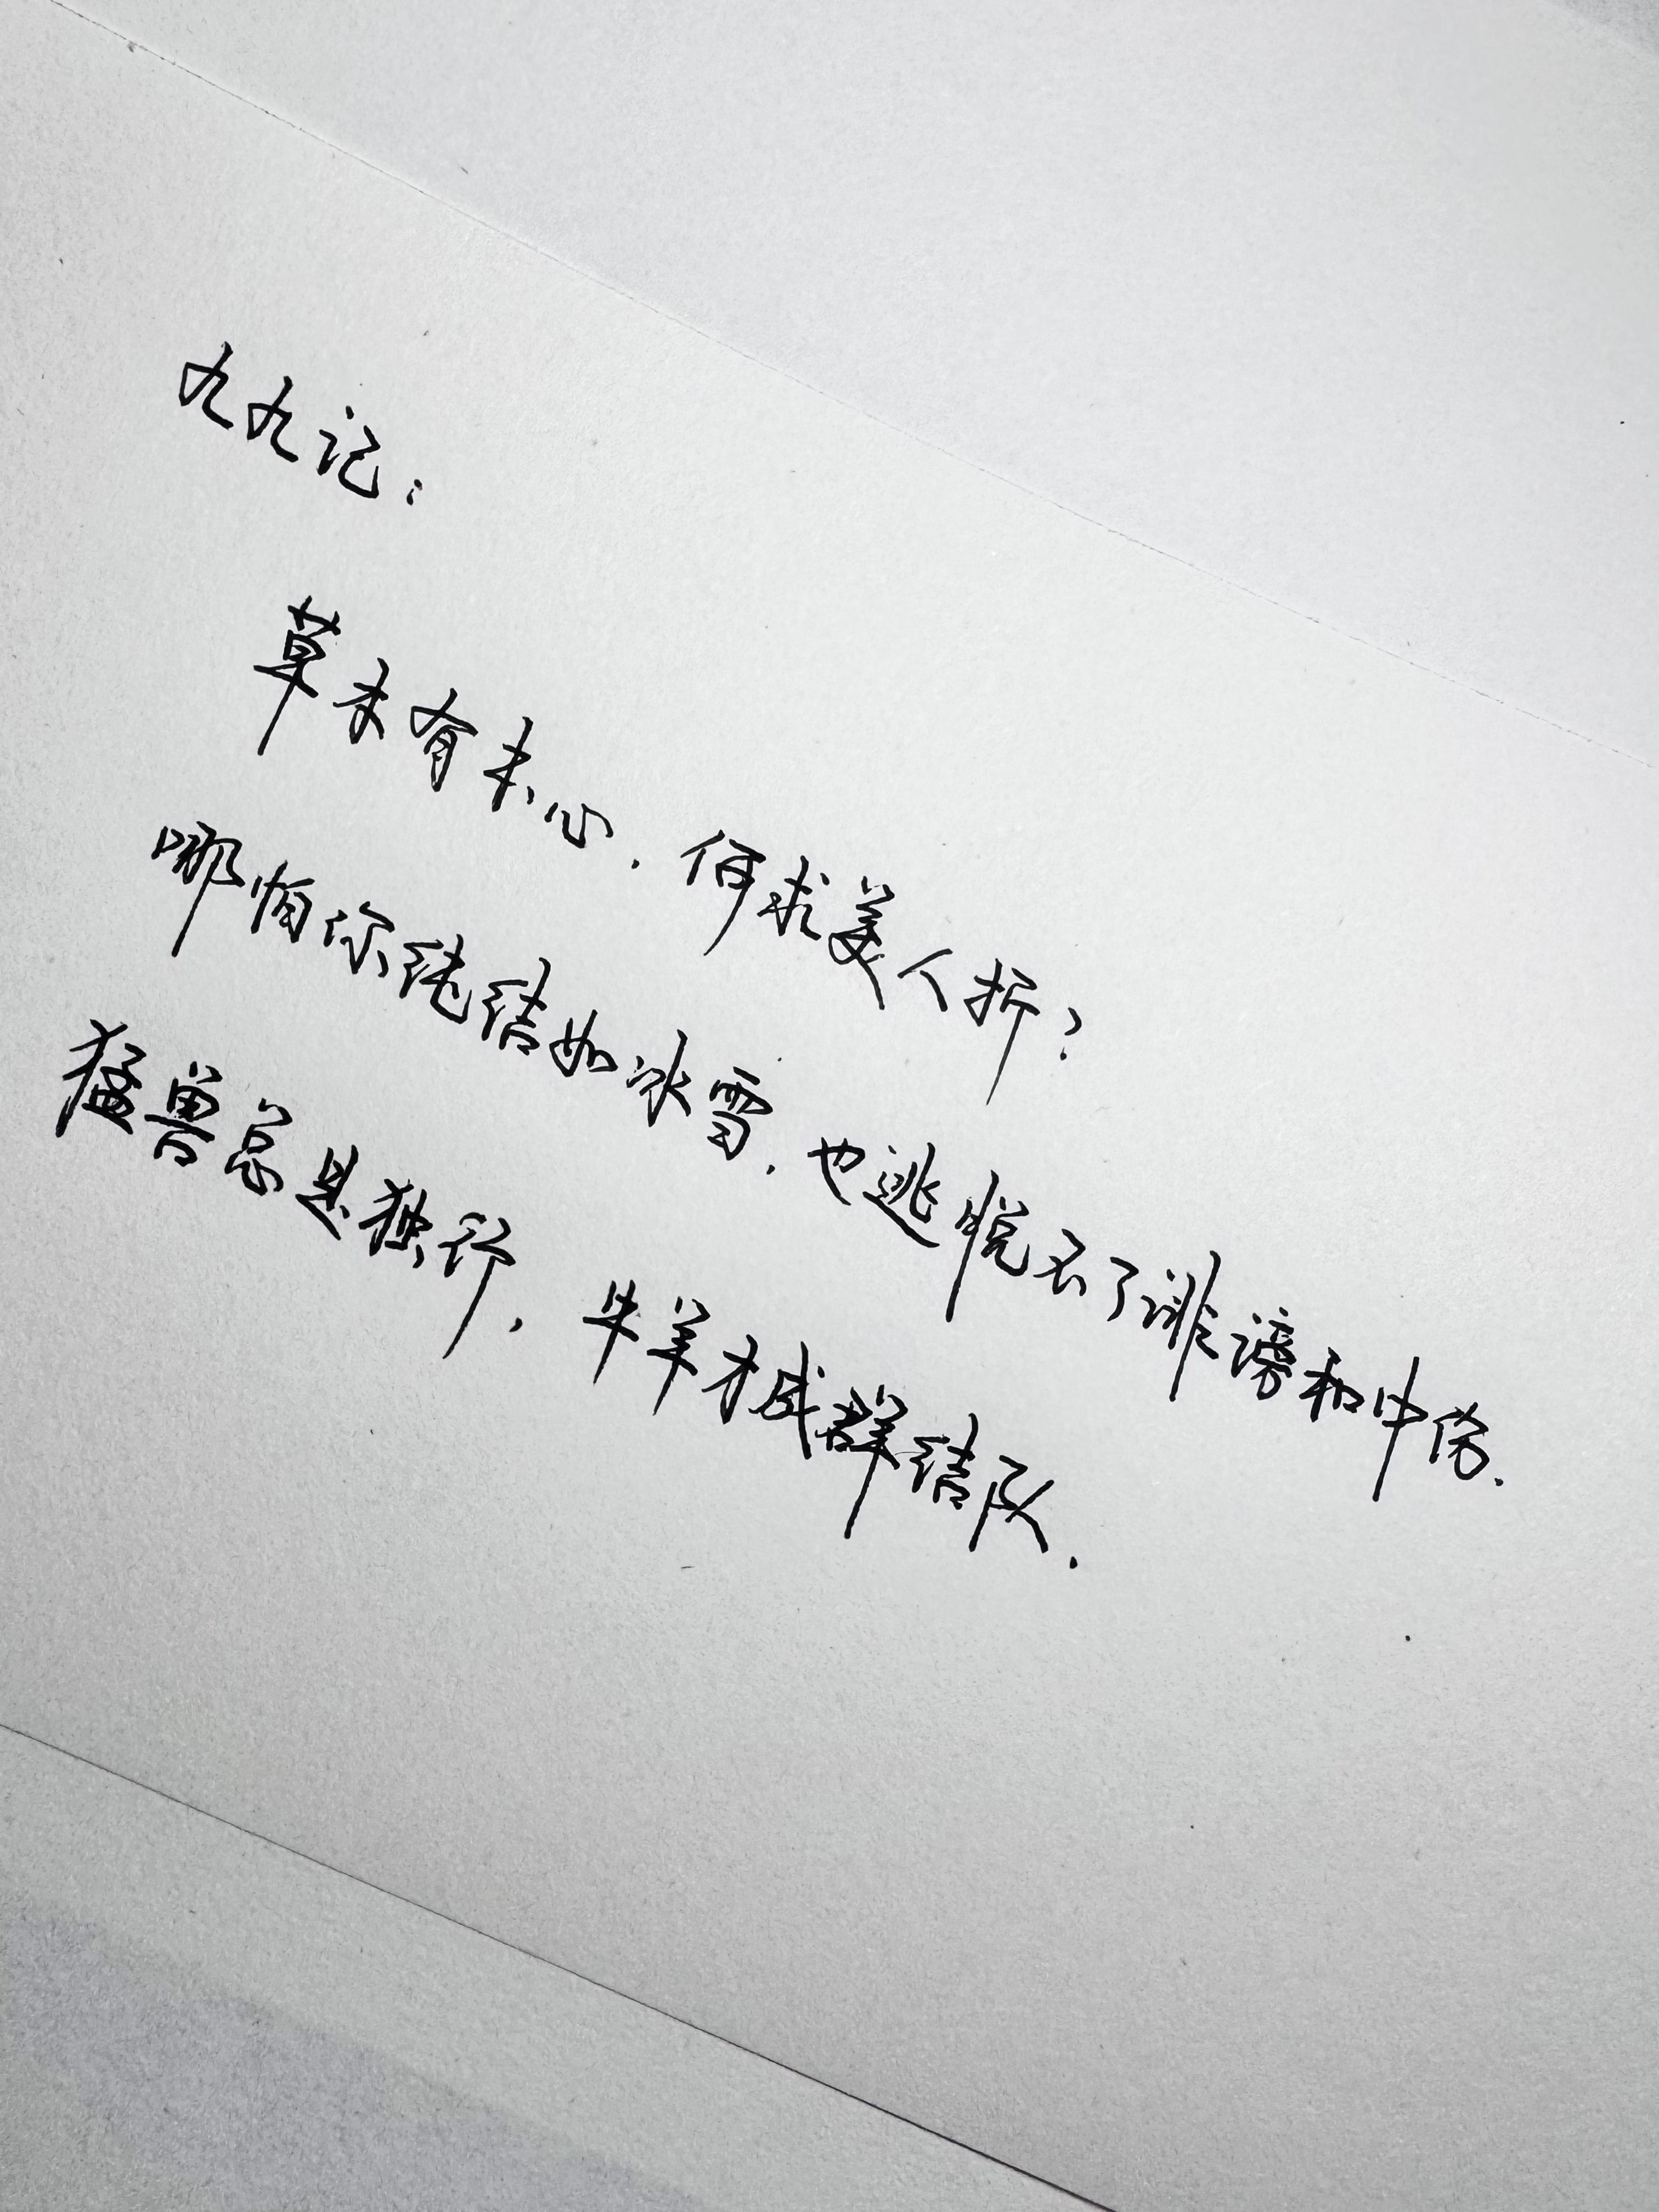 九九记：
草木有本心，何求美人折？
哪怕你纯结如冰雪，也逃悦不了诽谤和中伤.
猛兽总是独行，牛羊才成群结队.